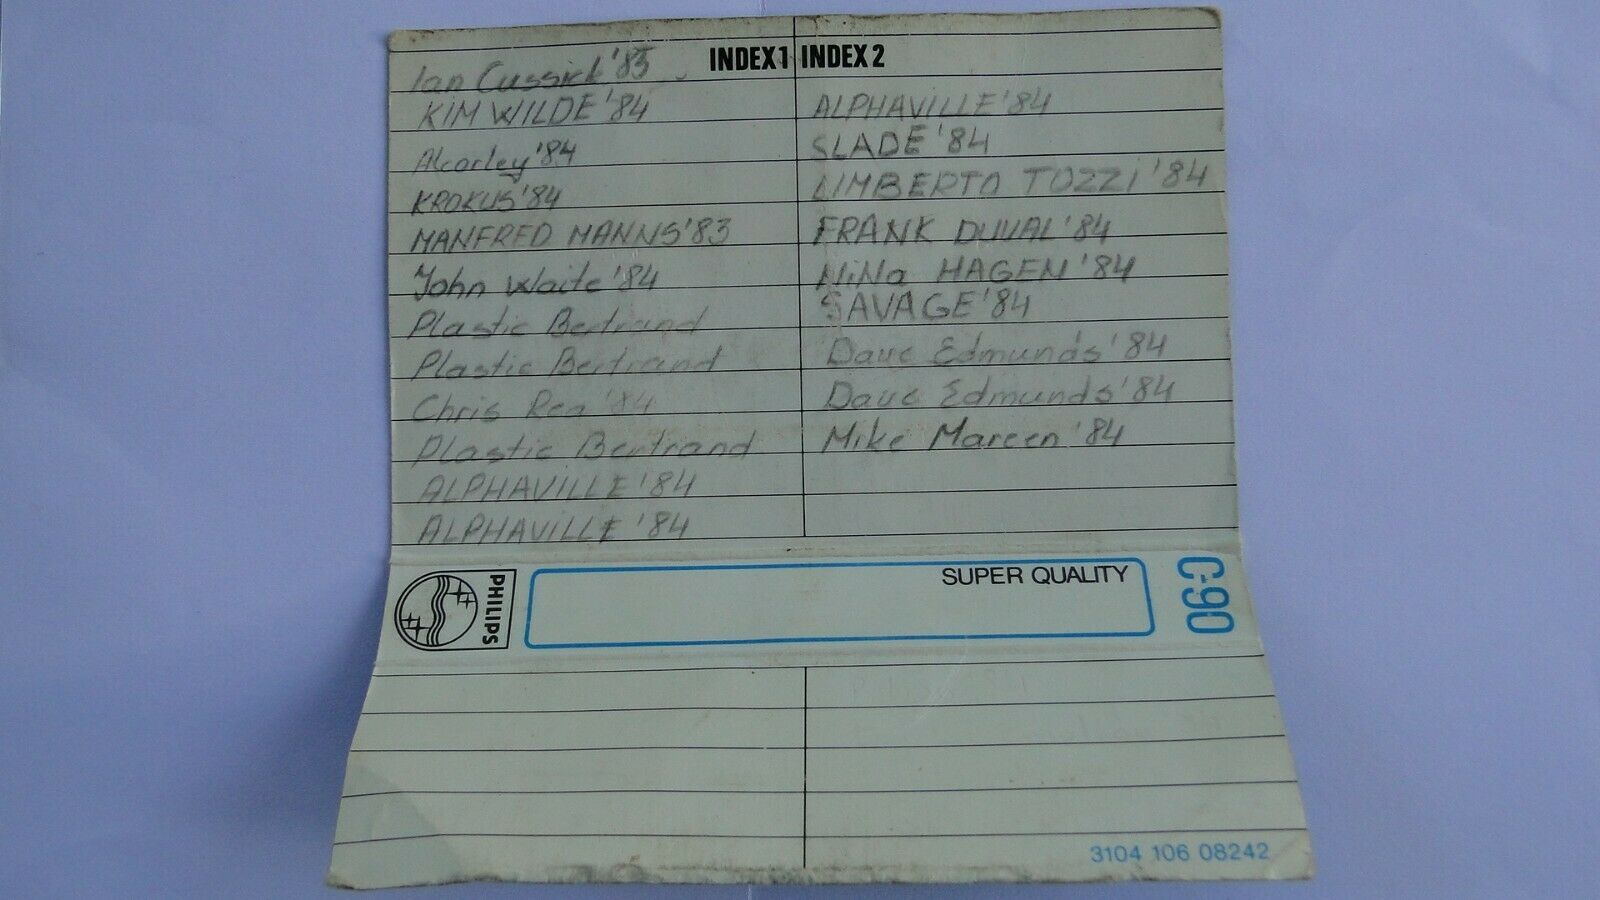 INDEX 1
Ian Cussick '85
KIM WILDE '84
Alcorley '84
KROKUS '84
MANFRED MANNS '83
John Waite '84
Plastic Bertrand
Plastic Bertrand
Chris Rea '84
Plastic Bertrand
ALPHAVILLE '84
ALPHAVILLE '84
INDEX 2
ALPHAVILLE '84
SLADE '84
UMBERTO TOZZI '84
FRANK DUVAL '84
NiNa HAGEN '84
SAVAGE '84
Dave Edmunds '84
Dave Edmunds '84
Mike Mareen '84
PHILIPS
SUPER QUALITY
C-90
3104 106 08242